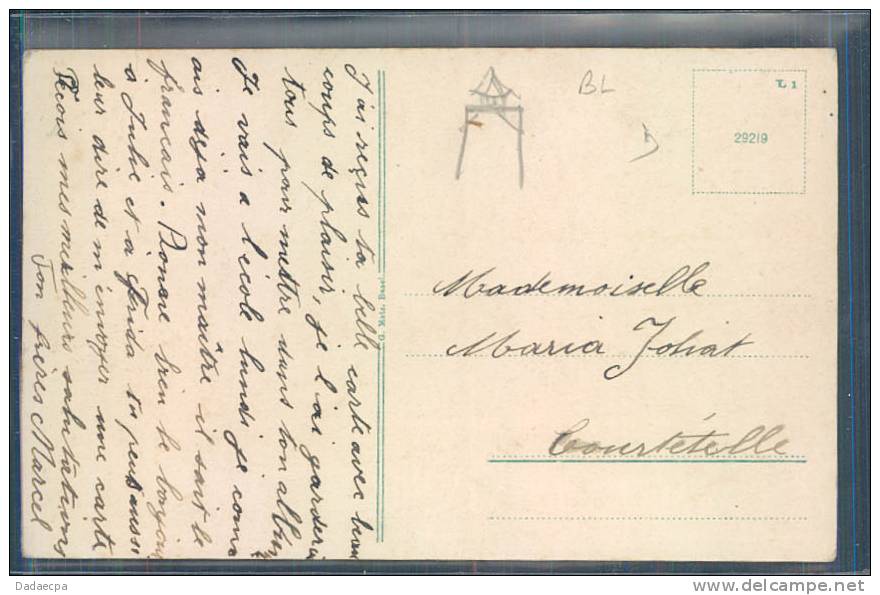 J'ai reçus ta belle carte avec beau
coups de plaisir, je l'ai garderai
tous pour mettre dans ton album
Je vais a l'école lundi je conn
ais deja mon maître il sait le
français. bien le bonjour
a Julie et a Frida tu peux aussi
leur dire de m'envoyer une carte
Recois mes meilleurs salutations
Ton frères Marcel
G. Metz, Basel
BL
L 1
29219
Mademoiselle
Maria Joliat
Courtételle
Dadaecpa
www.delcampe.net